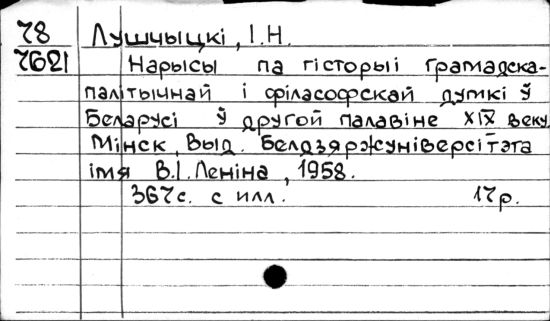 78 Лушчыцкі, І.Н.
7621 Нарысы па гісторыі грамадска-
палітычнай і філасофскай думкі ў
Беларусі ў другой палавіне XIX веку
Мінск, Выд. Белдзяржуніверсітэта
імя В.І. Леніна, 1958.
367с. с илл. 17р.